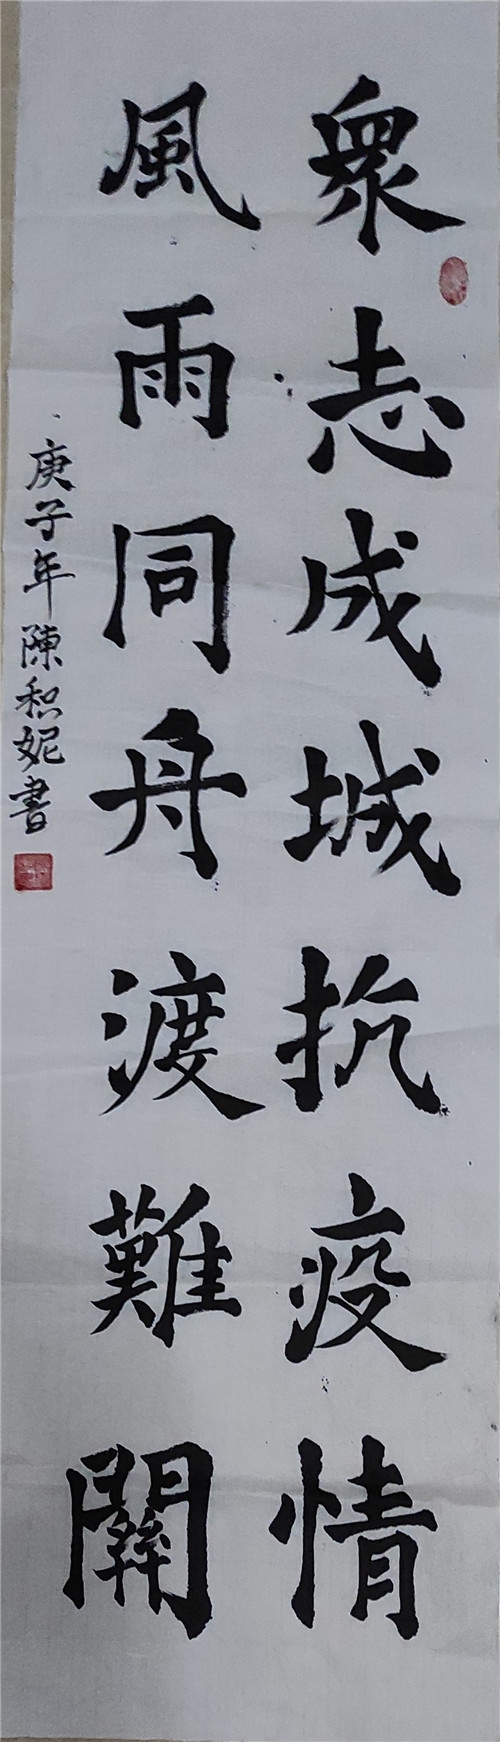 眾志成城抗疫情
風雨同舟渡難關
庚子年陳積妮書